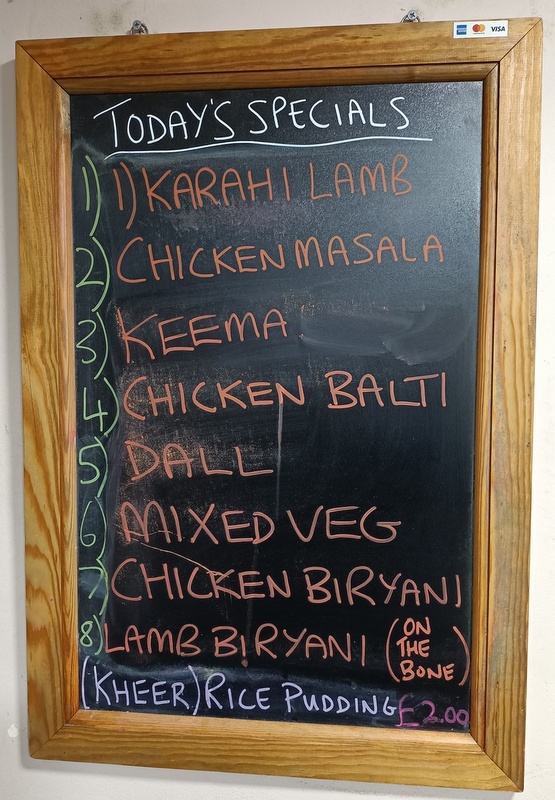 VISA
TODAY'S SPECIALS
1) 1) KARAHI LAMB
2) CHICKEN MASALA
3) KEEMA
4) CHICKEN BALTI
5) DALL
6) MIXED VEG
7) CHICKEN BIRYANI
8) LAMB BIRYANI (ON
THE
BONE)
(KHEER) RICE PUDDING £2.00